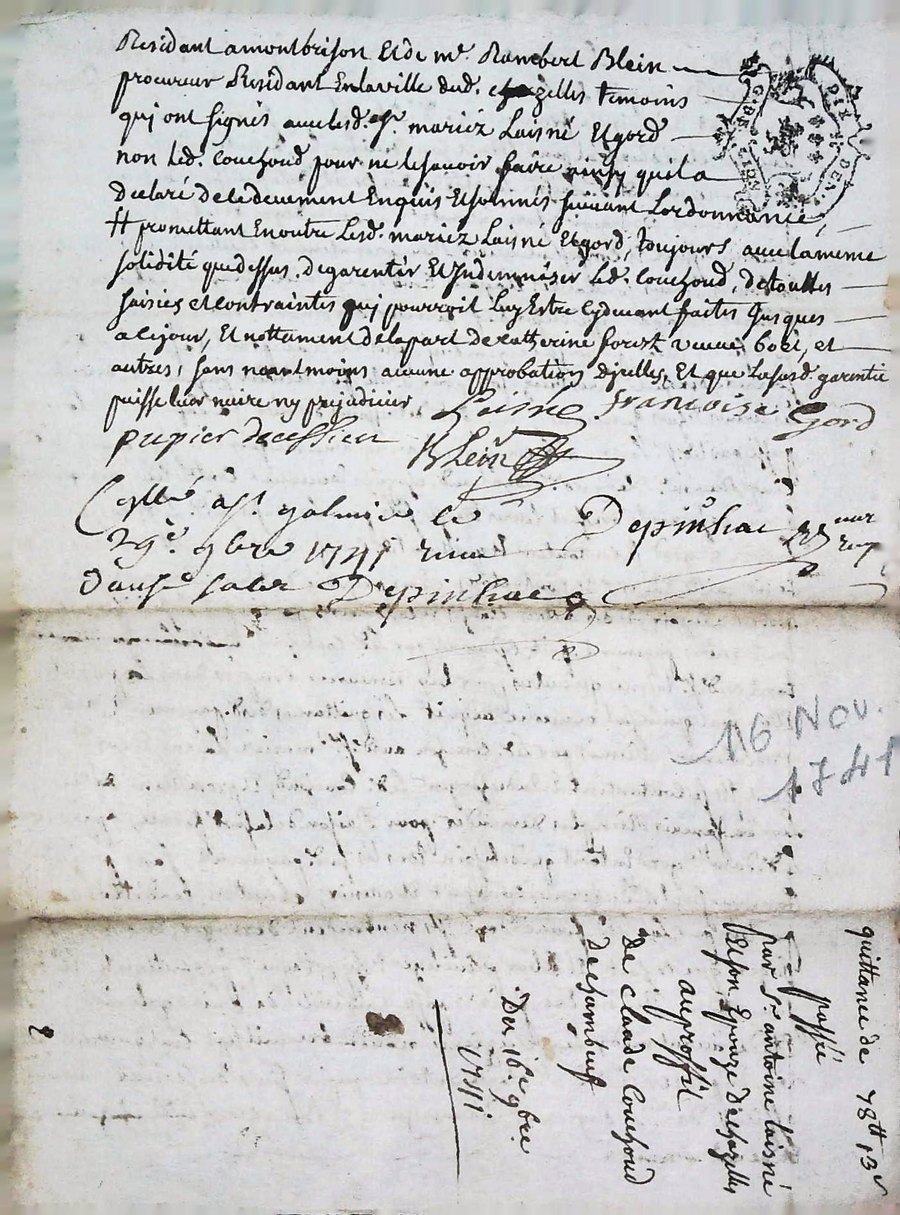 Residant a montbrison Et de me. Rambert Blein
procureur Residant En la ville dud. chazelles temoins
quj ont signés avec lesd. sr. mariez Laisné Et gord
non led. Couchoud pour ne le scavoir faire ainsy quil a
declaré de ce deuement Enquis Et sommés suivant Lordonnance
# promettant En outre Lesd. mariez Laisné Et gord, toujours avec la meme
solidité que dessus, de garentir Et Indemniser Led. Couchoud, de touttes
saisies et contraintes quj pourroit Luy Estre cydevant faites Jusques
a ce jour, Et nottament de la part de catherine forest veuve boet, et
autres, sans neantmoins aucune approbation dycelles, Et que la susd. garentie
puisse leur nuire ny prejudicier
Laisné francoise Gord
papier
Blein
Collé a st. galmier le
29e. 9bre 1741 recu
douse sols Depinhac
Depinhac
G. DE
16 Nov.
1741
quittance de 78tt 13s
passée
par sr. antoine laisné
Et son Epouze de chazelles
au proffit
de claude Couchoud
de chambeuf
Du 16e. 9bre
1741